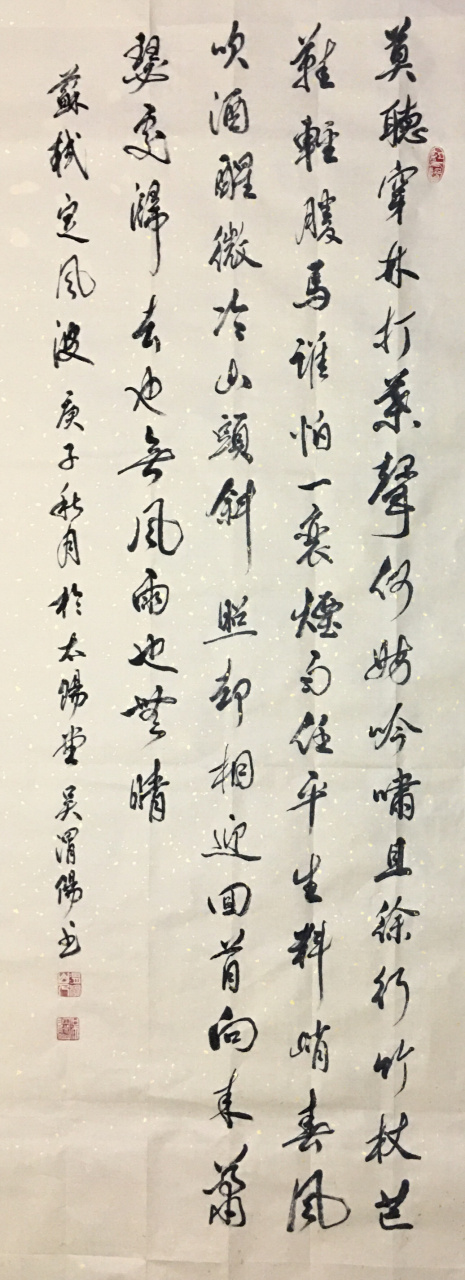 莫聽穿林打葉聲何妨吟嘯且徐行竹杖芒
鞋輕勝馬誰怕一蓑煙雨任平生料峭春風
吹酒醒微冷山頭斜照卻相迎回首向來蕭
瑟處歸去也無風雨也無晴
蘇軾定風波庚子秋月於太陽堂吳渭陽書